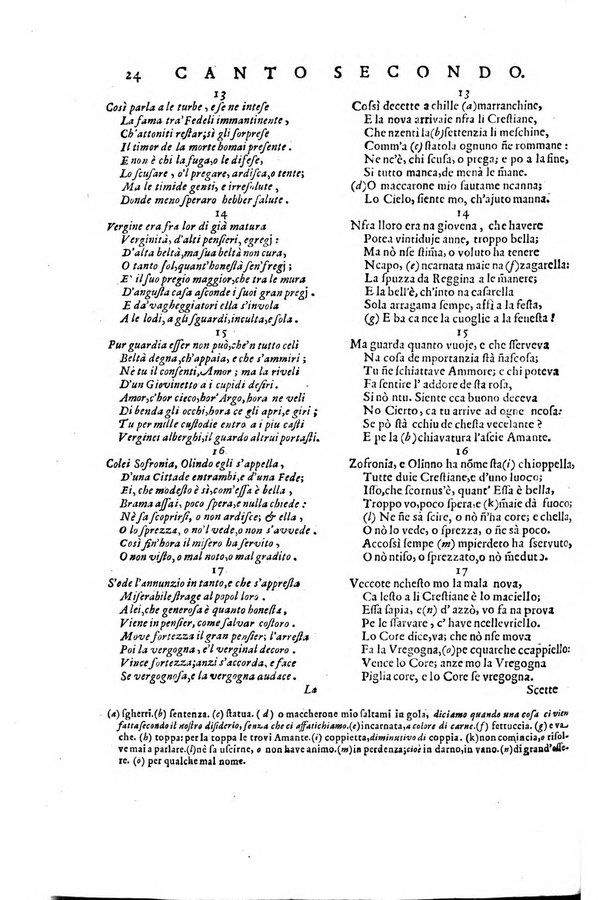 24 CANTO SECONDO.
13
Così parla a le turbe, e ſe ne inteſe
La fama tra' Fedeli immantinente,
Ch'attoniti reſtar; sì gli ſorpreſe
Il timor de la morte homai preſente.
E non è chi la fuga, o le difeſe,
Lo ſcuſare, o'l pregare, ardiſca, o tente;
Ma le timide genti, e irreſolute,
Donde meno ſperaro hebber ſalute.
14
Vergine era fra lor di già matura
Verginità, d'alti penſieri, egregj:
D'alta beltà, ma ſua beltà non cura,
O tanto ſol, quant'honeſtà ſen'fregj:
E' il ſuo pregio maggior, che tra le mura
D'anguſta caſa aſconde i ſuoi gran pregj.
E da'vagheggiatori ella s'invola
A le lodi, a gli ſguardi, inculta, e ſola.
15
Pur guardia eſſer non può, che'n tutto celi
Beltà degna, ch'appaia, e che s'ammiri;
Nè tu il conſenti, Amor; ma la riveli
D'un Giovinetto a i cupidi deſiri.
Amor, c'hor cieco, hor'Argo, hora ne veli
Di benda gli occhi, hora ce gli apri, e giri;
Tu per mille cuſtodie entro a i piu caſti
Verginei alberghi, il guardo altrui portaſti.
16
Colei Sofronia, Olindo egli s'appella,
D'una Cittade entrambi, e d'una Fede;
Ei, che modeſto è sì, com'eſſa è bella,
Brama aſſai, poco ſpera, e nulla chiede:
Nè ſa ſcoprirſi, o non ardiſce; & ella,
O lo ſprezza, o nol vede, o non s'avvede.
Così fin'hora il miſero ha ſervito,
O non viſto, o mal noto, o mal gradito.
17
S'ode l'annunzio in tanto, e che s'appreſta
Miſerabile ſtrage al popol loro.
A lei, che generoſa è quanto honeſta,
Viene in penſier, come ſalvar coſtoro.
Move fortezza il gran penſier; l'arreſta
Poi la vergogna, e'l verginal decoro.
Vince fortezza; anzi s'accorda, e face
Se vergognoſa, e la vergogna audace.
La
13
Coſsì decette a chille (a) marranchine,
E la nova arrivaie nfra li Creſtiane,
Che nzentì la (b) ſettenzia li meſchine,
Comm'a (c) ſtatola ognuno ñe rommane:
Ne nc'è, chi ſcuſa, o prega; e po a la fine,
Si tutto manca, de nuie ñe le m̃ane.
(d) O maccarone mio ſautame ncanna;
Lo Cielo, ſiente mo, ch'ajuto manna.
14
Nfra lloro nc'era na giovena, che havere
Potea vintiduje anne, troppo bella;
Ma no nſe ſtĩma, o voluto ha tenere
Ncapo, (e) ncarnata maie na (f) zagarella:
La ſpuzza da Reggina a le m̃anere;
E la bell'è, ch'into na caſarella
Sola arragama ſempe, aſſì a la feſta,
(g) E ba canca le cuoglie a la feneſta!
15
Ma guarda quanto vuoje, e che ſſerveva
Na coſa de mportanzia ſtà ñaſcoſa;
Tu ñe ſchiattave Ammore; e mo chi poteva
Fa ſentire l'addore de ſta roſa,
Si nò ntu. Siente cca buono deceva
No Cierto, ca tu arrive ad ogne ncoſa:
Se pò ſtà cchiu de cheſta vecelante?
E pe la (h) chiavatura l'aſcie Amante.
16
Zofronia, e Olinno ha nõme ſta (i) chioppella,
Tutte duie Creſtiane, e d'uno luoco;
Iſſo, che ſcornus'è, quant' Eſſa è bella,
Troppo vò, poco ſpera, e (k) m̃aie dà fuoco;
(l) Ne ñe sà ſcire, o nõ ñ'ha core; ed eſſa,
O nò lo vede, o ſprezza, o ñe sà poco.
Accoſsì ſempe (m) mpierdeno ha ſservuto,
O nò ntiſo, o ſprezzato, o nò m̃eduto.
17
Veccote ncheſto mo la mala nova,
Ca leſto a li Creſtiane è lo maciello;
Eſſa ſapia, e (n) d'azzò, vo fa na prova
Pe le ſſarvare, c'have ncellevriello.
Lo Core dice, va; che nò nſe mova
Fa la Vregogna, (o) pe cquarche ccappiello:
Vence lo Core; anze mo la Vregogna
Piglia core, e lo Core ſe vregogna.
Scette
(a) ſgherri. (b) ſentenza. (c) ſtatua. (d) o maccherone mio ſaltami in gola, diciamo quando una coſa ci vien
fatta ſecondo il noſtro diſiderio, ſenza che ci affatichiamo. (e) incarnata, a colore di carne. (f) fettuccia. (g) e va-
che. (h) toppa: per la toppe le trovi Amante. (i) coppietta, diminutivo di coppia. (k) non comincia, o riſol-
ve mai a parlare. (l) nè ſa uſcirne, o non hanimo. (m) in perdenza; cioè in darno, in vano. (n) di grand'eſſe-
re. (o) per qualche mal nome.